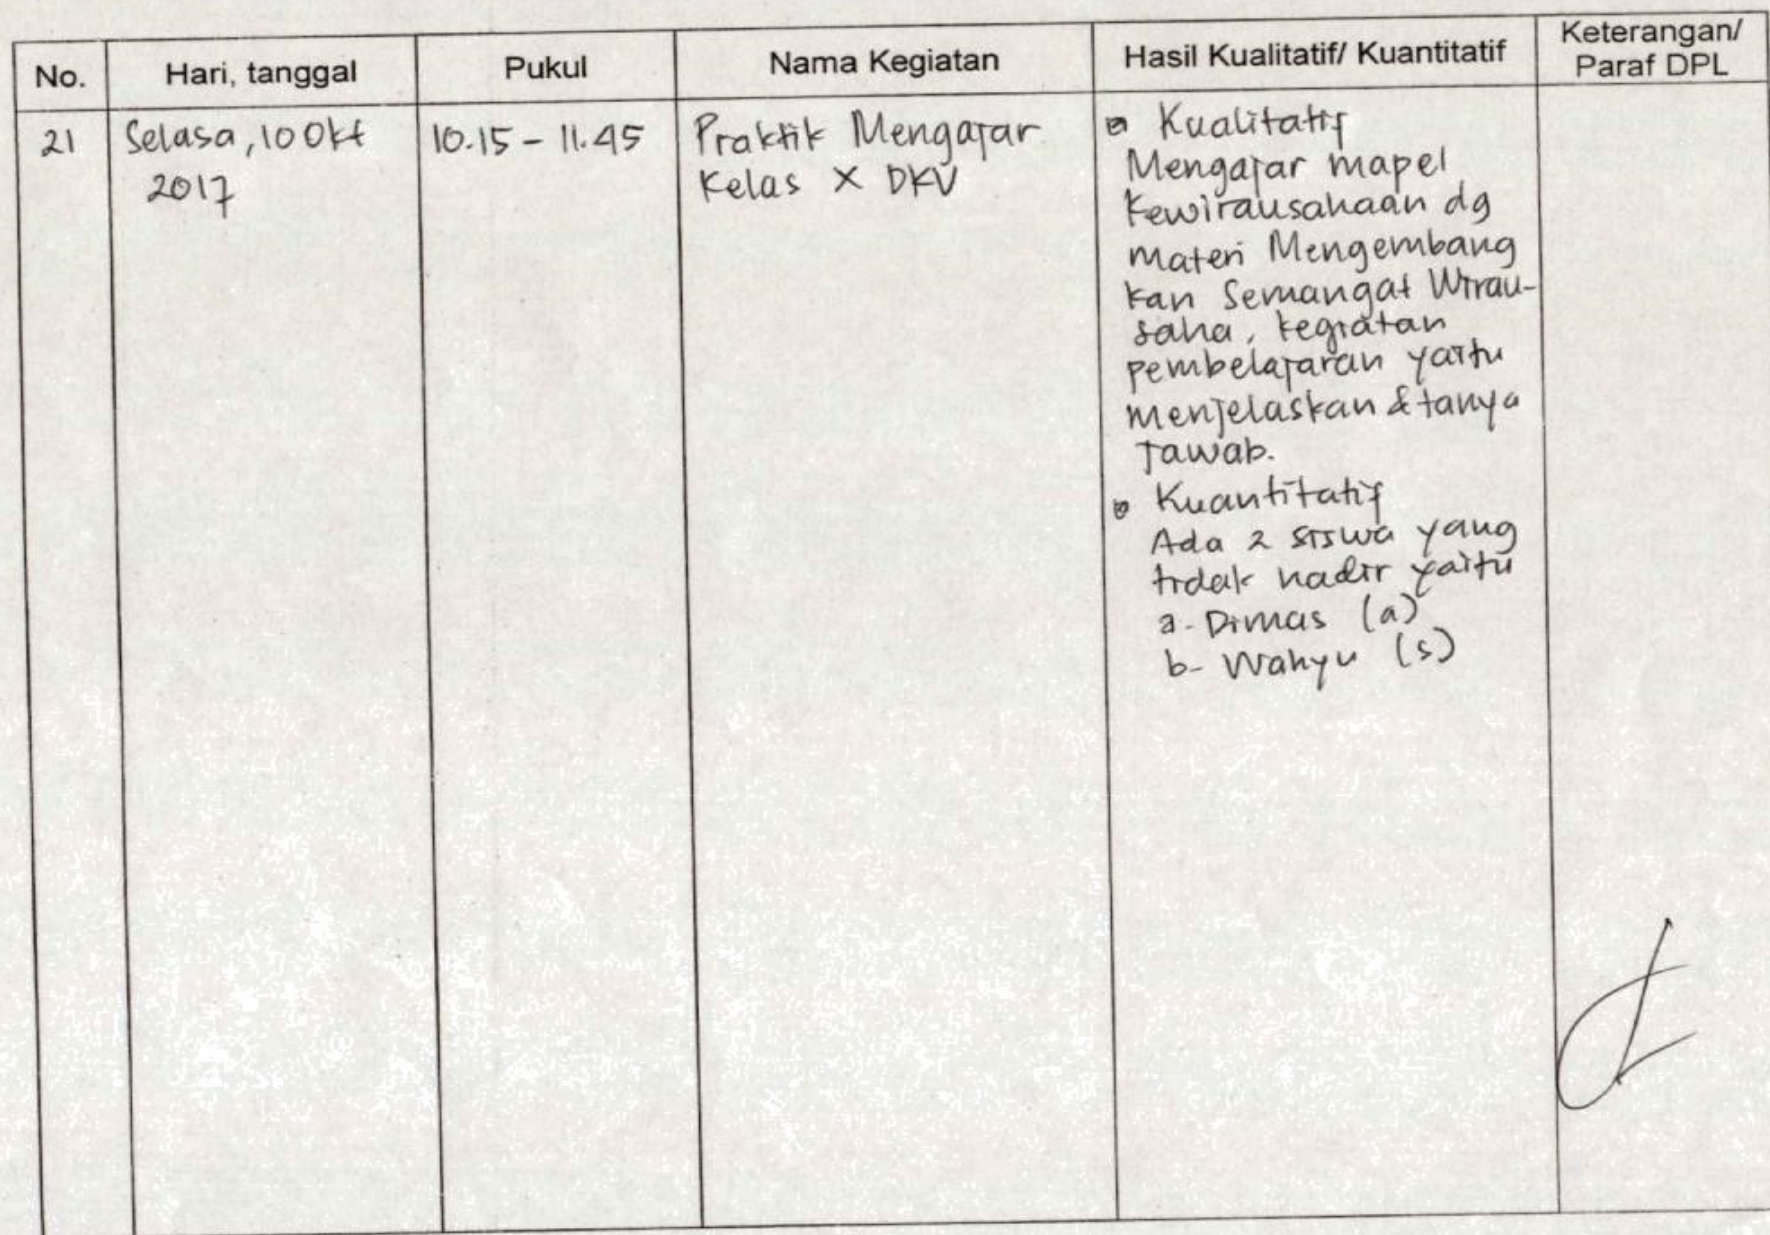 No.
Hari, tanggal
Pukul
Nama Kegiatan
Hasil Kualitatif/ Kuantitatif
Keterangan/
Paraf DPL
21
Selasa, 10 Okt
2017
10.15 - 11.45
Praktik Mengajar
Kelas X DKV
Kualitatif
Mengajar mapel
Kewirausahaan dg
materi Mengembang
kan Semangat Wirau-
saha, kegiatan
pembelajaran yaitu
menjelaskan & tanya
jawab.
Kuantitatif
Ada 2 siswa yang
tidak hadir yaitu
a. Dimas (a)
b. Wahyu (s)